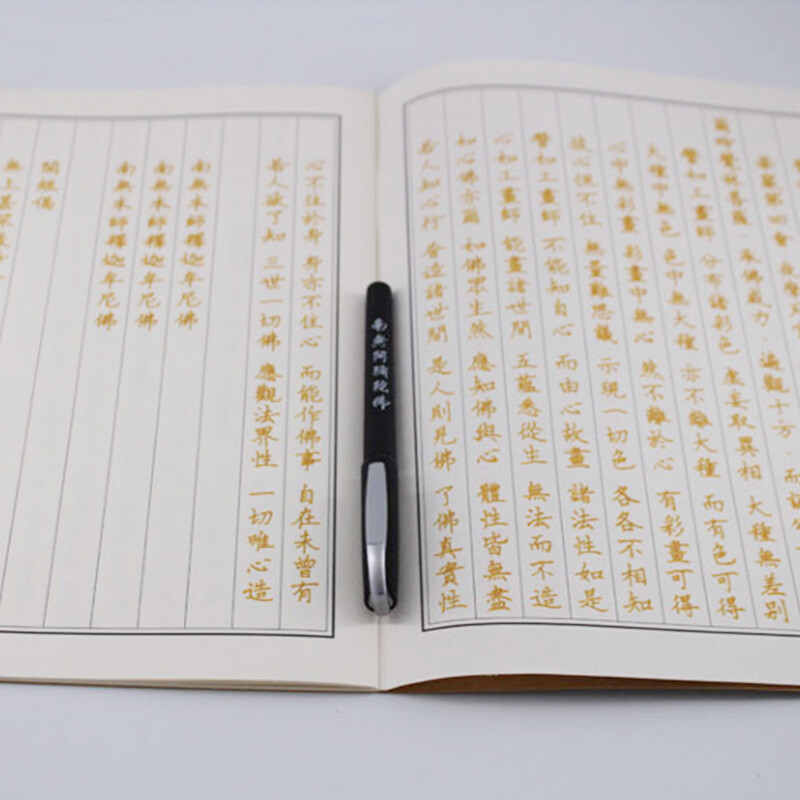 華嚴第四會 夜摩天
爾時覺林菩薩 承佛威力 遍觀十方 而說
譬如工畫師 分布諸彩色 虛妄取異相 大種無差別
大種中無色 色中無大種 亦不離大種 而有色可得
心中無彩畫 彩畫中無心 然不離於心 有彩畫可得
彼心恒不住 無量難思議 示現一切色 各各不相知
譬如工畫師 不能知自心 而由心故畫 諸法性如是
心如工畫師 能畫諸世間 五蘊悉從生 無法而不造
如心佛亦爾 如佛眾生然 應知佛與心 體性皆無盡
若人知心行 普造諸世間 是人則見佛 了佛真實性
南無阿彌陀佛
心不住於身 身亦不住心 而能作佛事 自在未曾有
若人欲了知 三世一切佛 應觀法界性 一切唯心造
南無本師釋迦牟尼佛
南無本師釋迦牟尼佛
南無本師釋迦牟尼佛
開經偈
無上甚深微